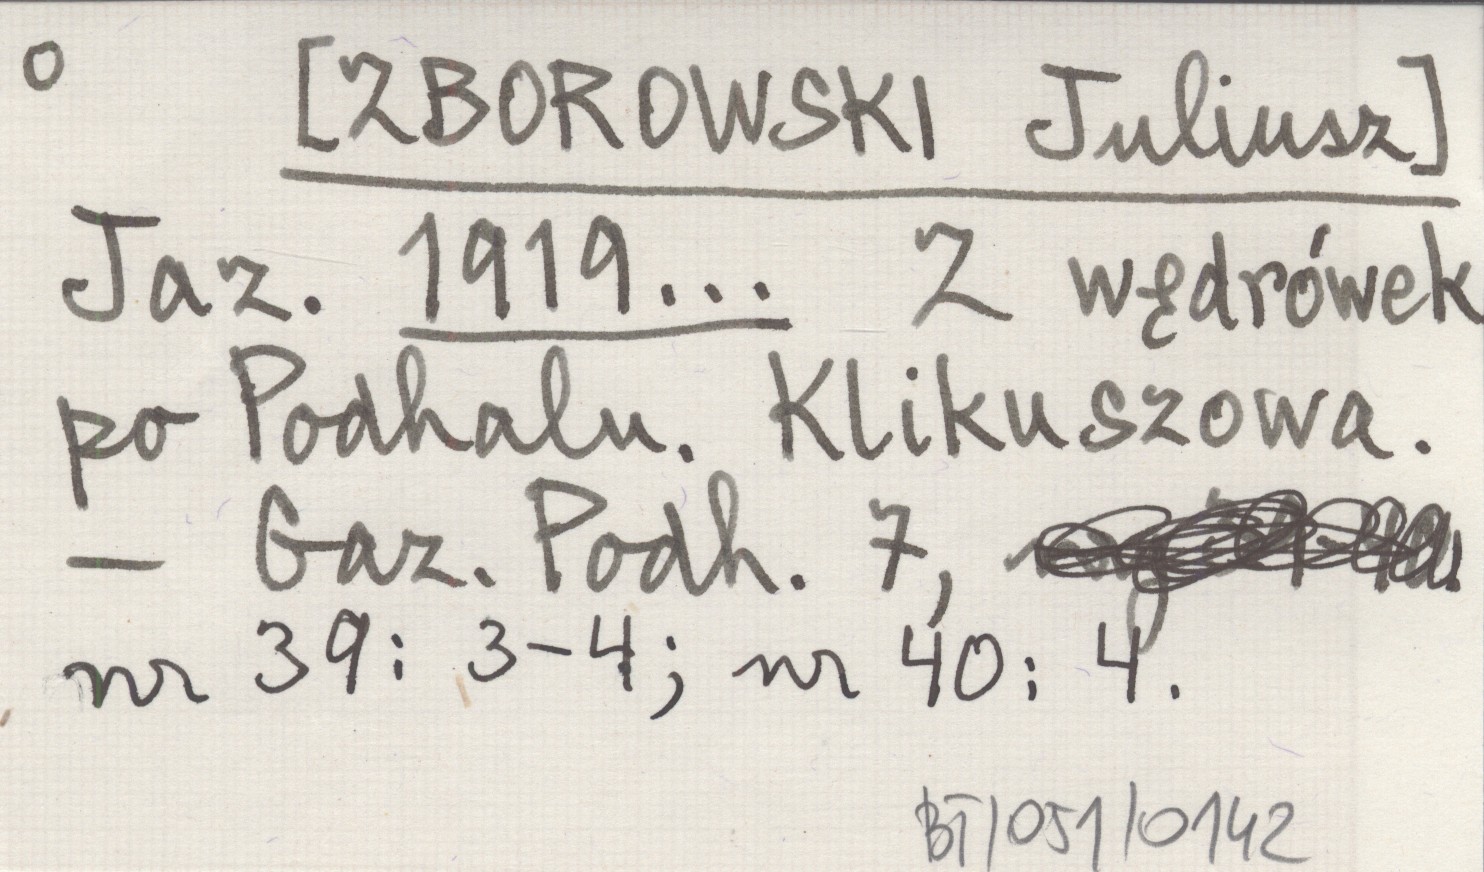 o [ZBOROWSKI Juliusz]
Jaz. 1919... Z wędrówek
po Podhalu. Klikuszowa.
— Gaz. Podh. 7,
nr 39: 3-4; nr 40: 4.
BT/051/0142